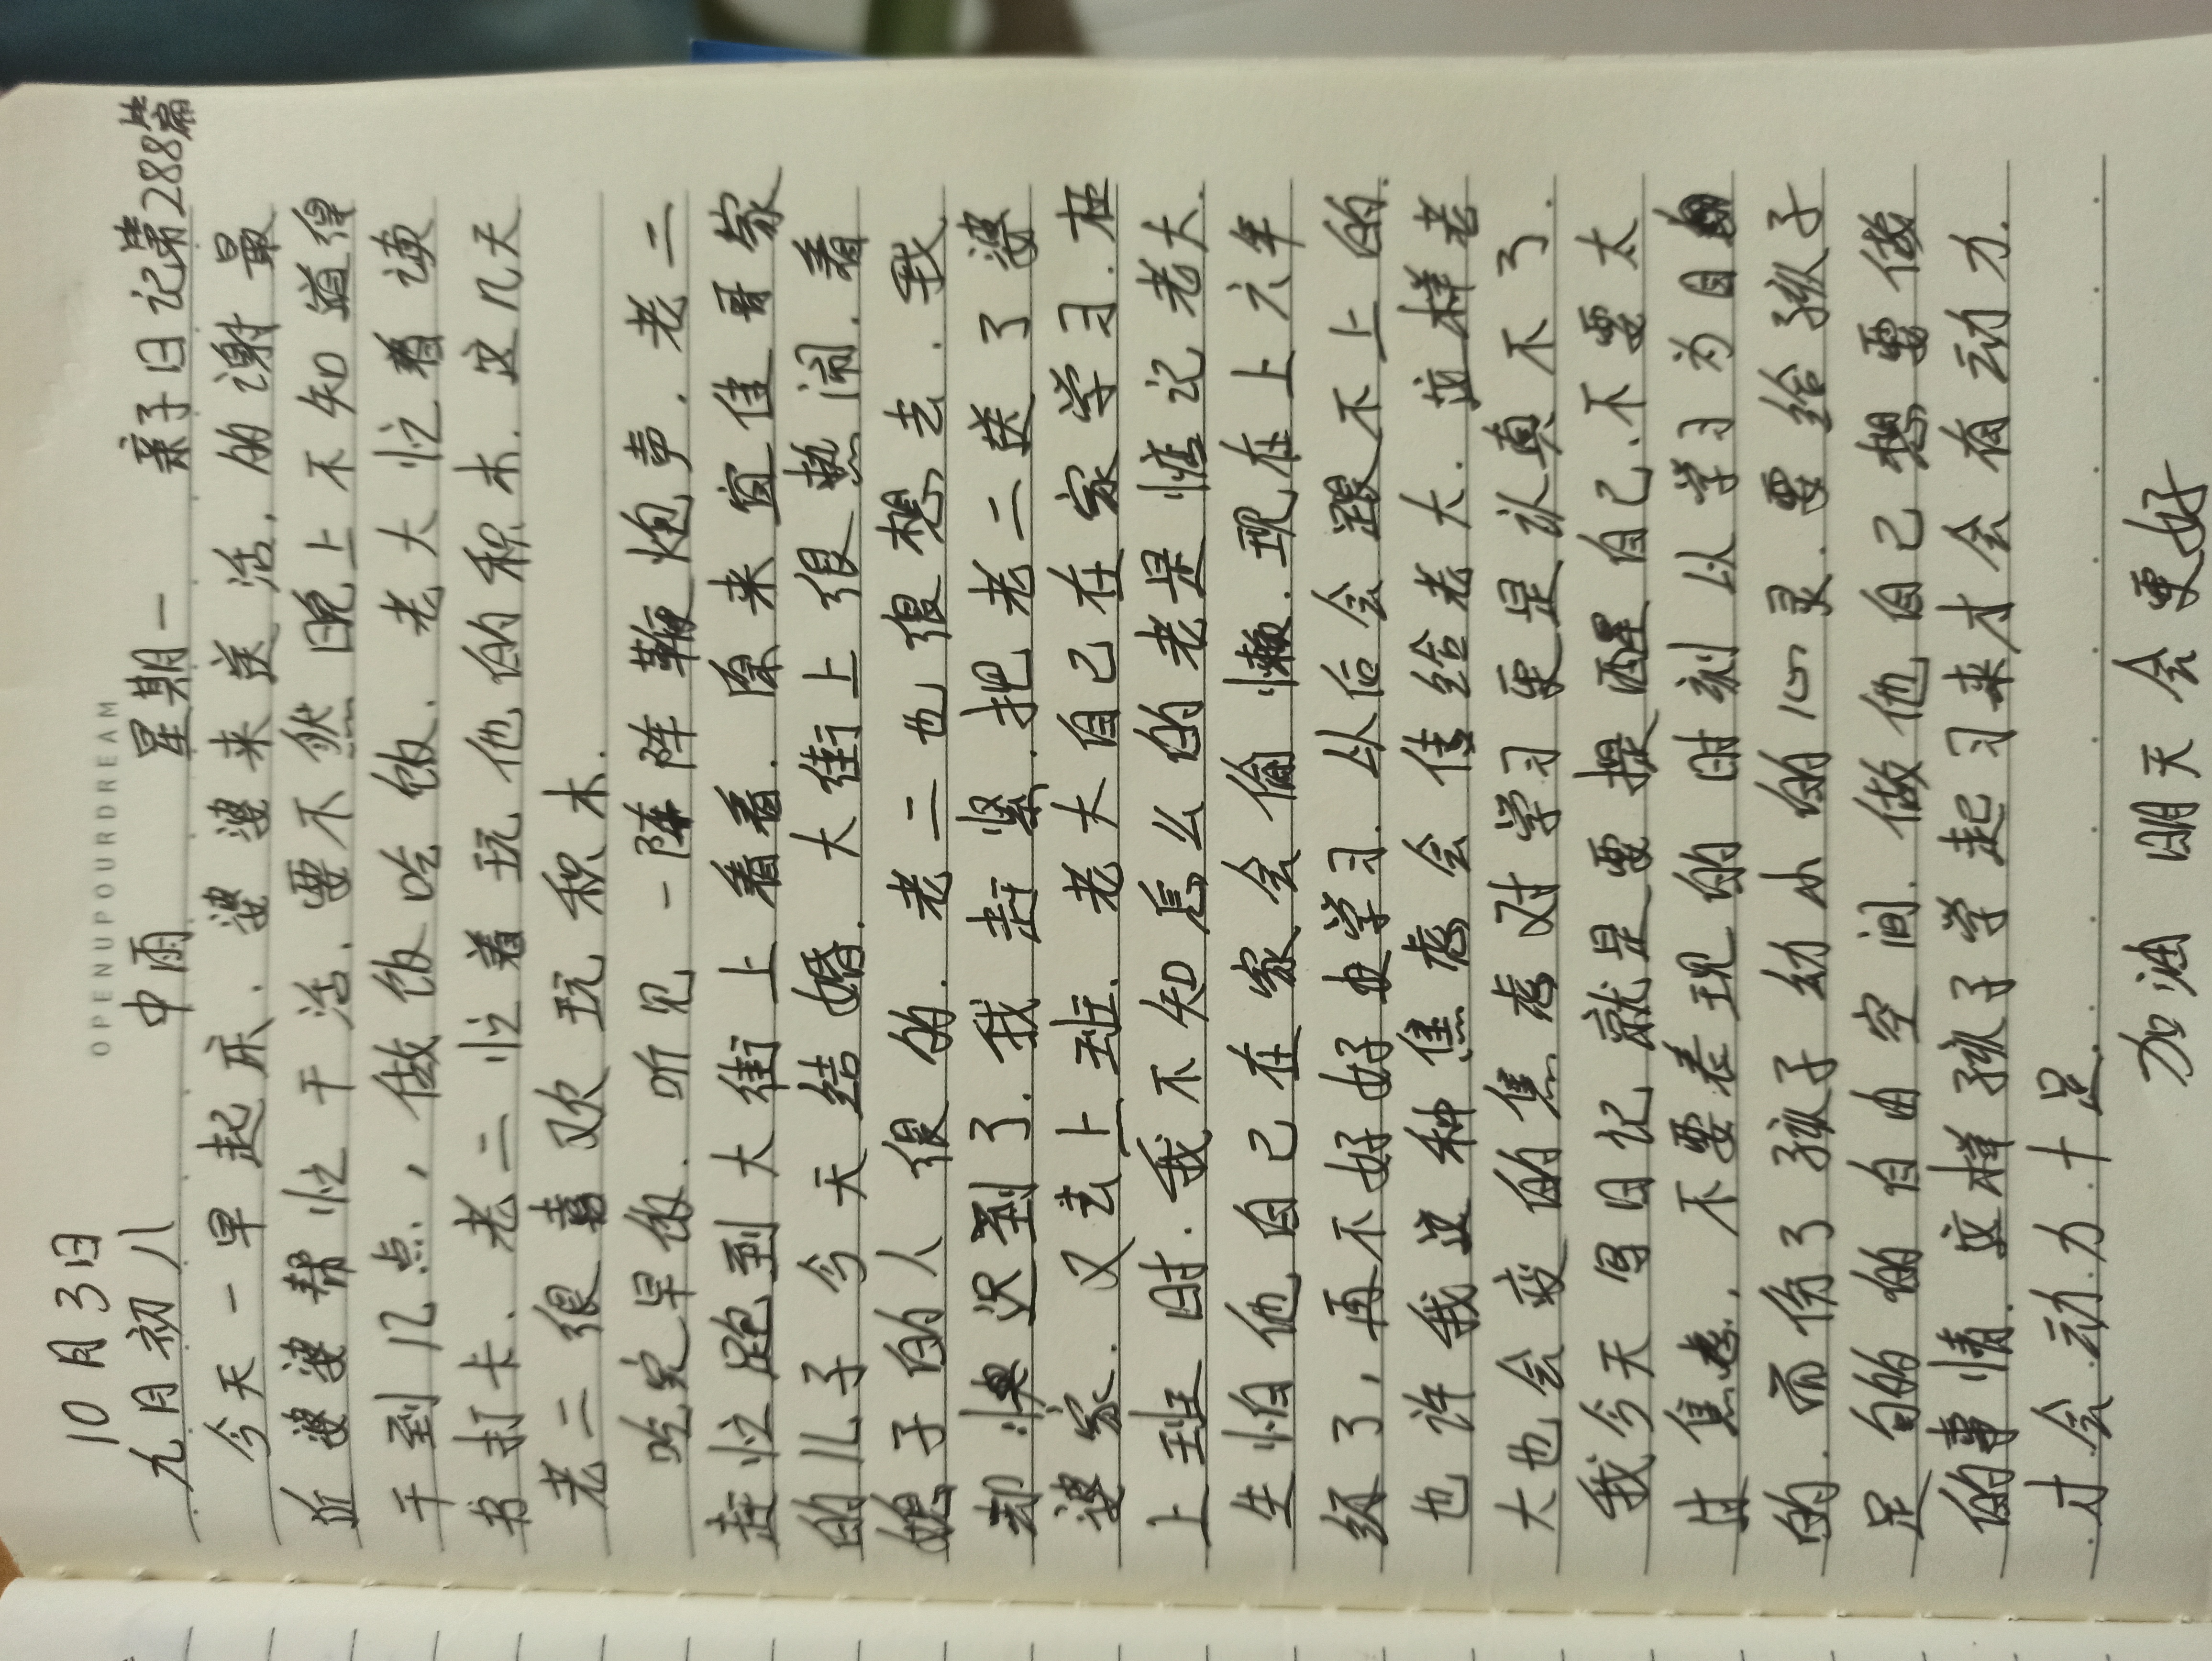 OPENUPYOURDREAM
10月3日
九月初八 中雨 星期一 亲子日记第288篇
今天一早起床、婆婆来送活,的谢最
近婆婆帮忙干活,要不然晚上不知道得
干到几点,做饭吃饭.老大忙着读
书打卡.老二忙着玩他的积木.这几天
老二很喜欢玩积木.
吃完早饭.听见一阵阵鞭炮声.老二
赶忙跑到大街上看看.原来宜佳哥家
的儿子今天结婚.大街上很热闹.看
媳子的人很的.老二也很想去.我
却:恨迟到了.我赶紧.把老二送了婆
婆家.又去上班.老大自己在家学习.在
上班时.我不知怎么的老是惦记老大.
生怕他自己在家会偷懒.现在上六年
级了,再不好好学习.从后会跟不上的.
也许我这种焦虑会传给老大.这样老
大也会变的焦虑对学习更是认真不了.
我今天写日记就是要提醒自己.不要太
过焦虑,不要表现的时刻以学习为目
的.而伤了孩子幼小的心灵.要给孩子
足够的的自由空间.做他自己想要做
的事情.这样孩子学起习来才会有动力.
才会动力十足.
加油 明天会更好